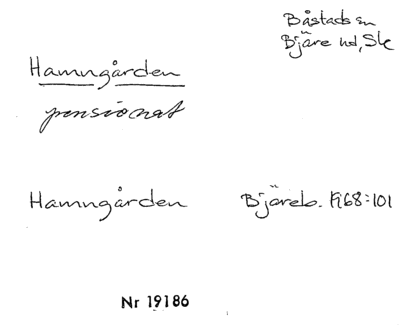 Båstads sn
Bjäre hd, Sk
Hamngården
pensionat
Hamngården Bjäreb. 1968:101
Nr 19186